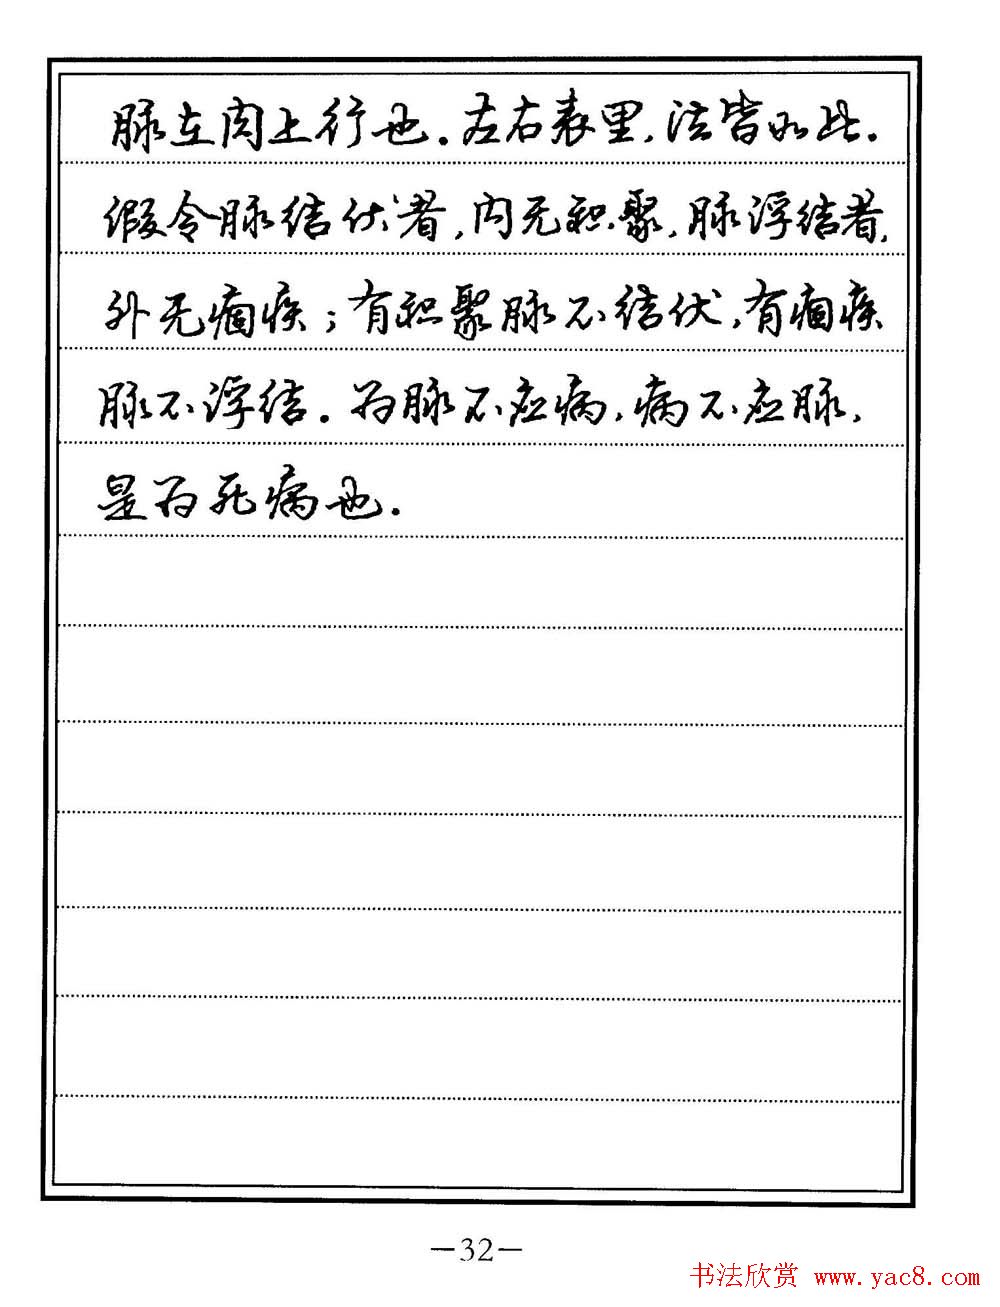 脉在肉上行也.左右表里,法皆如此.
假令脉结伏者,内无积聚,脉浮结者,
外无痼疾;有积聚脉不结伏,有痼疾
脉不浮结.为脉不应病,病不应脉,
是为死病也.
—32—
书法欣赏 www.yac8.com